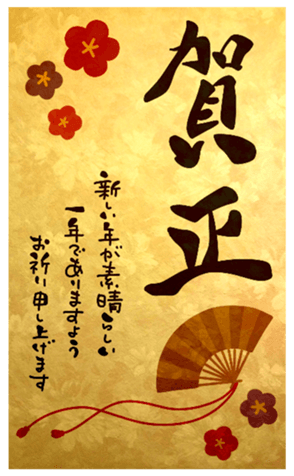 賀正
新しい年が素晴らしい
一年でありますよう
お祈り申し上げます